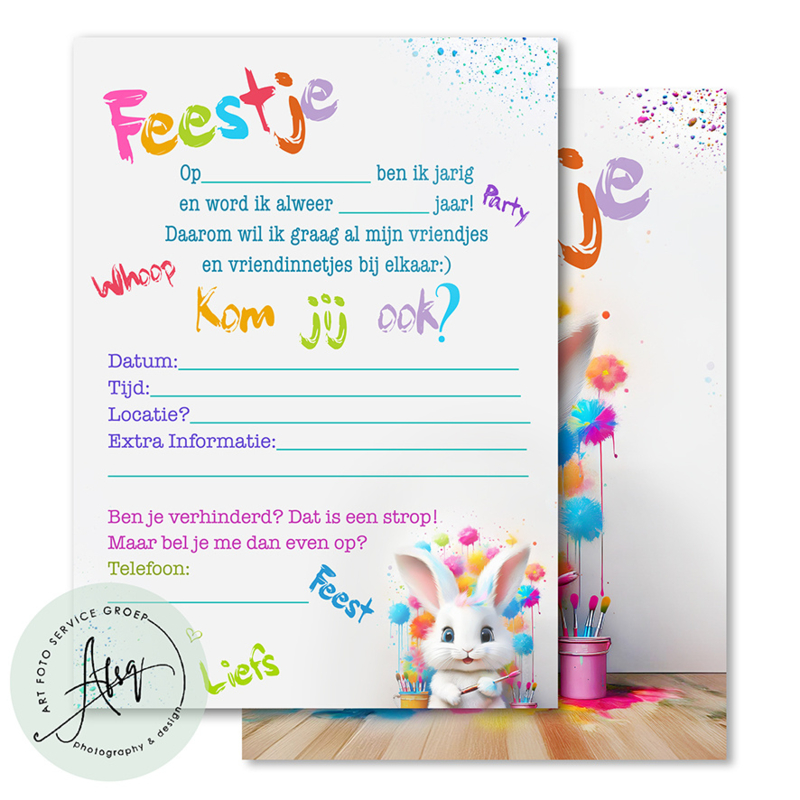 Feestje
Op ben ik jarig
en word ik alweer jaar!
Party
Daarom wil ik graag al mijn vriendjes
en vriendinnetjes bij elkaar:)
Whoop
Kom jij ook?
Datum:
Tijd:
Locatie?
Extra Informatie:
Ben je verhinderd? Dat is een strop!
Maar bel je me dan even op?
Telefoon:
Feest
Liefs
je
ART FOTO SERVICE GROEP
Afsg
photography & design